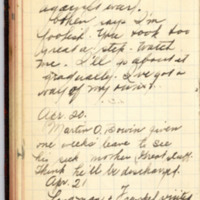 again (
Cohen says I'm
foolish. You took too
great a step. Watch
me. I'll go about it
gradually. I've got a
way of my own.
Apr. 20.
Martin O. Bowin given
one weeks leave to see
his sick mother (Great stuff.
Think he'll be discharged.
Apr. 21
visited